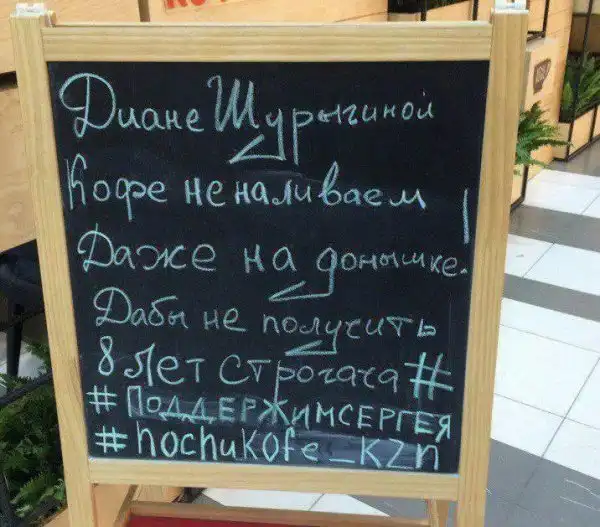 Диане Шурыгиной
Кофе не наливаем
Даже на донышке.
Дабы не получить
8 лет строгача #
#ПОДДЕРЖИМСЕРГЕЯ
#hochukofe_kzn